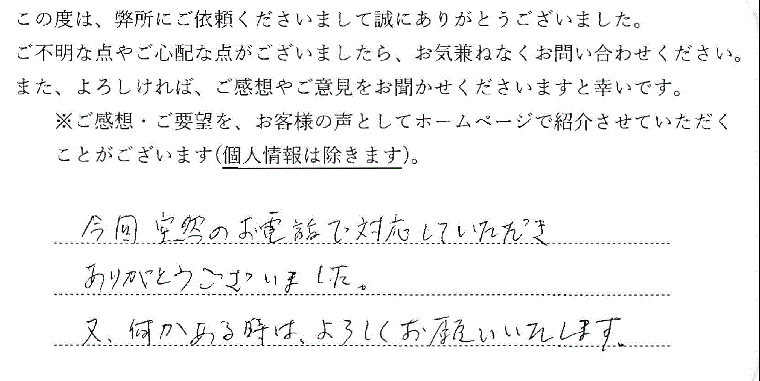 この度は、弊所にご依頼くださいまして誠にありがとうございました。
ご不明な点やご心配な点がございましたら、お気兼ねなくお問い合わせください。
また、よろしければ、ご感想やご意見をお聞かせくださいますと幸いです。
※ご感想・ご要望を、お客様の声としてホームページで紹介させていただく
ことがございます(個人情報は除きます)。
今回突然のお電話で対応していただき
ありがとうございました。
又、何かある時は、よろしくお願いいたします。